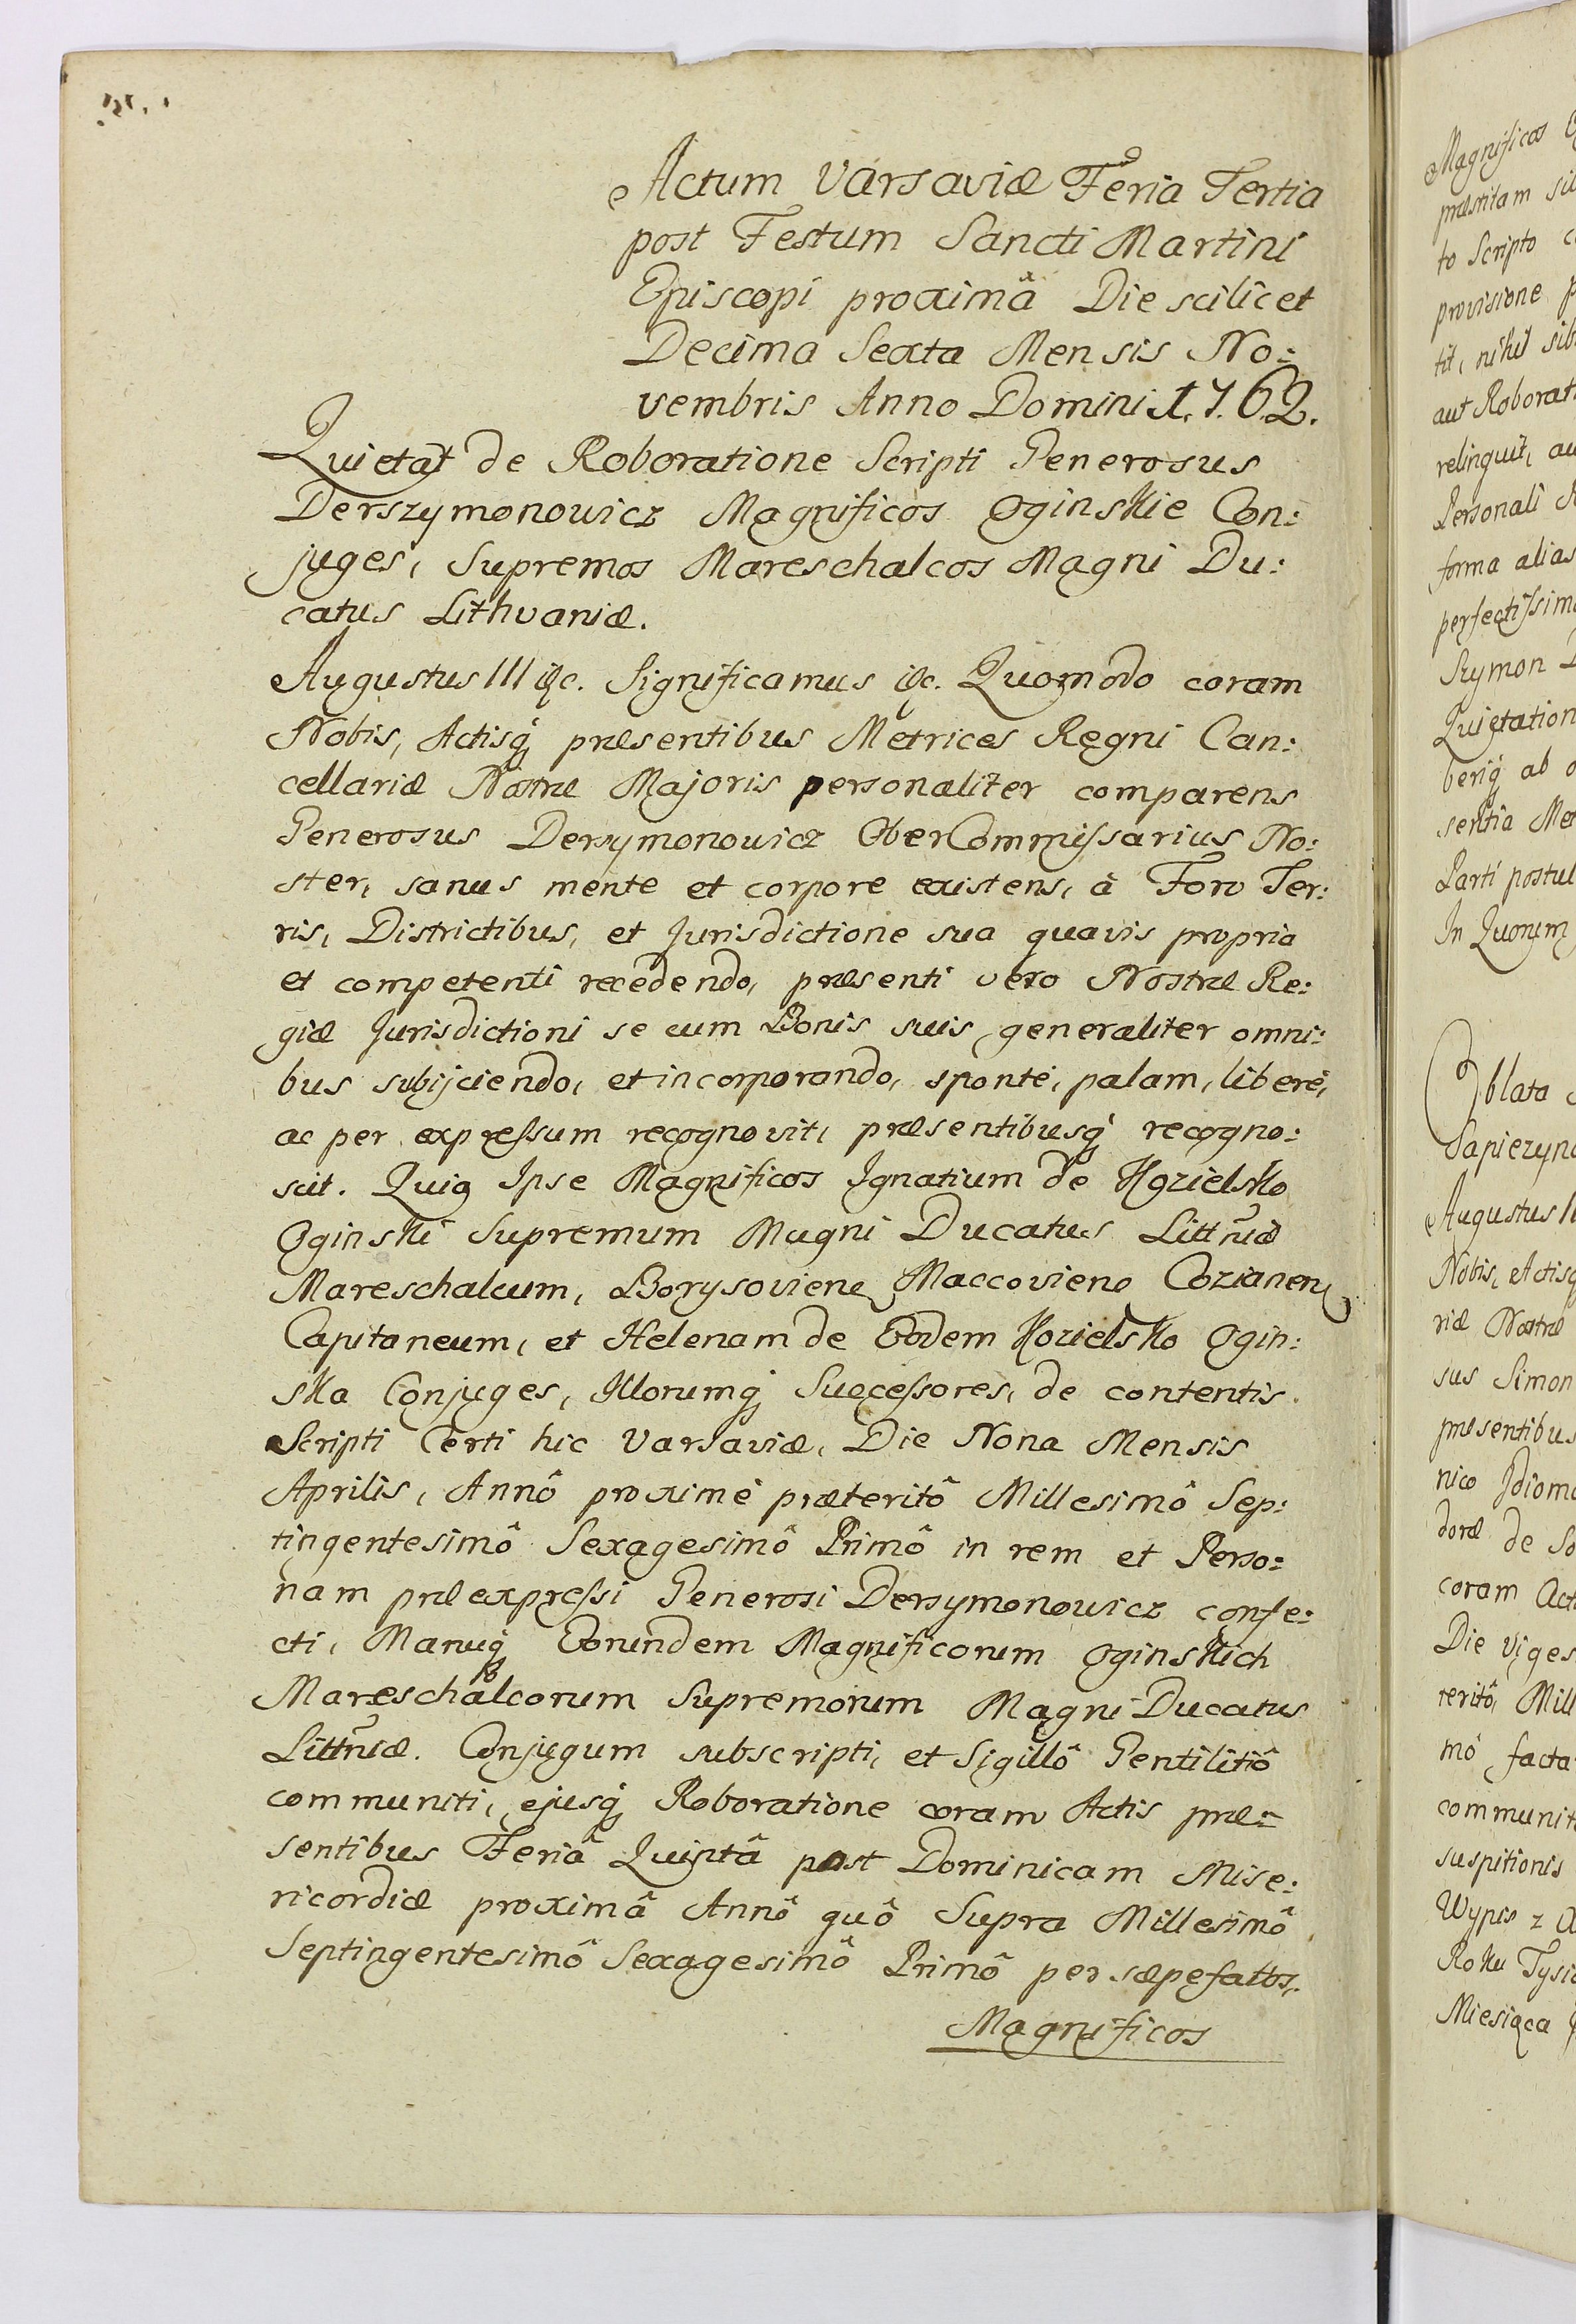 Actum Varsaviæ Feria Tertia
post Festum Sancti Martini
Episcopi proximâ Die scilicet
Decima Sexta Mensis No:
vembris Anno Domini 1.7.6.2.
Quietat de Roboratione Scripti Generosus
Derszymonowicz Magnificos Oginskie Con:
juges, Supremos Mareschalcos Magni Du:
catus Lithvaniæ.
Augustus III etc. Significamus etc. Quomodo coram
Nobis, Actisq præsentibus Metrices Regni Can:
cellariæ Nostræ Majoris personaliter comparens
Generosus Derszymonowicz OberCommissarius No:
ster, sanus mente et corpore existens, à Foro Ter:
ris, Districtibus, et Jurisdictione sua quavis propria
et competenti recedendo, præsenti vero Nostræ Re:
giæ Jurisdictioni se cum Bonis suis generaliter omni:
bus subijciendo, et incorporando, sponte, palam, liberè,
ac per expressum recognovit, præsentibusq recogno:
scit. Quia Ipse Magnificos Ignatium de Kozielsko
Oginski Supremum Magni Ducatus Littniæ
Mareschalcum, Borysoviens Maccoviens Cozianens
Capitaneum, et Helenam de Eodem Kozielsko Ogin:
ska Conjuges, Illorumq Successores, de contentis
Scripti Certi hic Varsaviæ, Die Nona Mensis
Aprilis, Annô proximè præteritô Millesimô Sep:
tingentesimô Sexagesimô Primô in rem et Perso:
nam præexpressi Generosi Dersymonowicz confe:
cti, Manuq Eorundem Magnificorum Oginskich
Mareschalcorum Supremorum Magni Ducatus
Littniæ. Conjugum subscripti, et Sigillô Gentilitiô
communiti, ejusq Roboratione coram Actis præ:
sentibus Feriâ Quintâ post Dominicam Mise:
ricordiæ proximâ Annô quô Supra Millesimô
Septingentesimô Sexagesimô Primô per sæpefattos,
Magnificos
Magnificos
præstitam
to Scripto
provisione
tit, nihil
aut
relinquit,
Personali
forma alias
Szymon
ab
sentia
Parti
In Quorum
Oblata
Augustus
Nobis,
riæ Nostræ
sus Simon
præsentibus
nico
doræ de
coram
Die
facta
suspitionis
Wypis z
Roku
Miesiąca